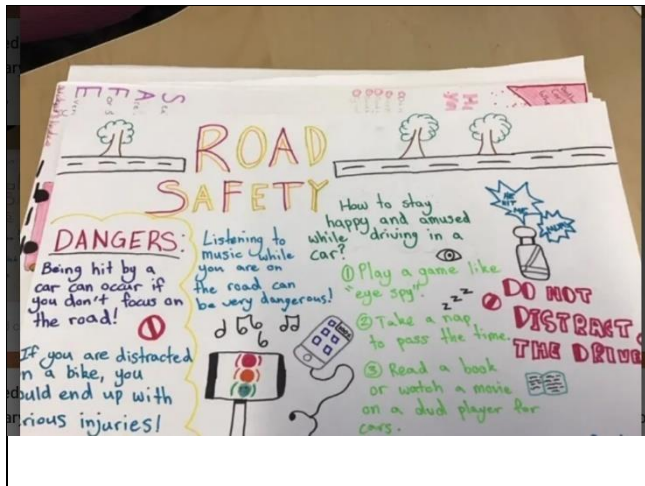 ROAD
SAFETY
DANGERS:
Being hit by a
car can occur if
you don't focus on
the road!
If you are distracted
n a bike, you
uld end up with
rious injuries!
Listening to
music while
you are on
the road can
be very dangerous!
How to stay
happy and amused
while driving in a
car?
① Play a game like
"eye spy".
② Take a nap
to pass the time.
zzz
③ Read a book
or watch a movie
on a dvd player for
cars.
HE
HIT
ME
DO NOT
DISTRACT
THE DRIVE